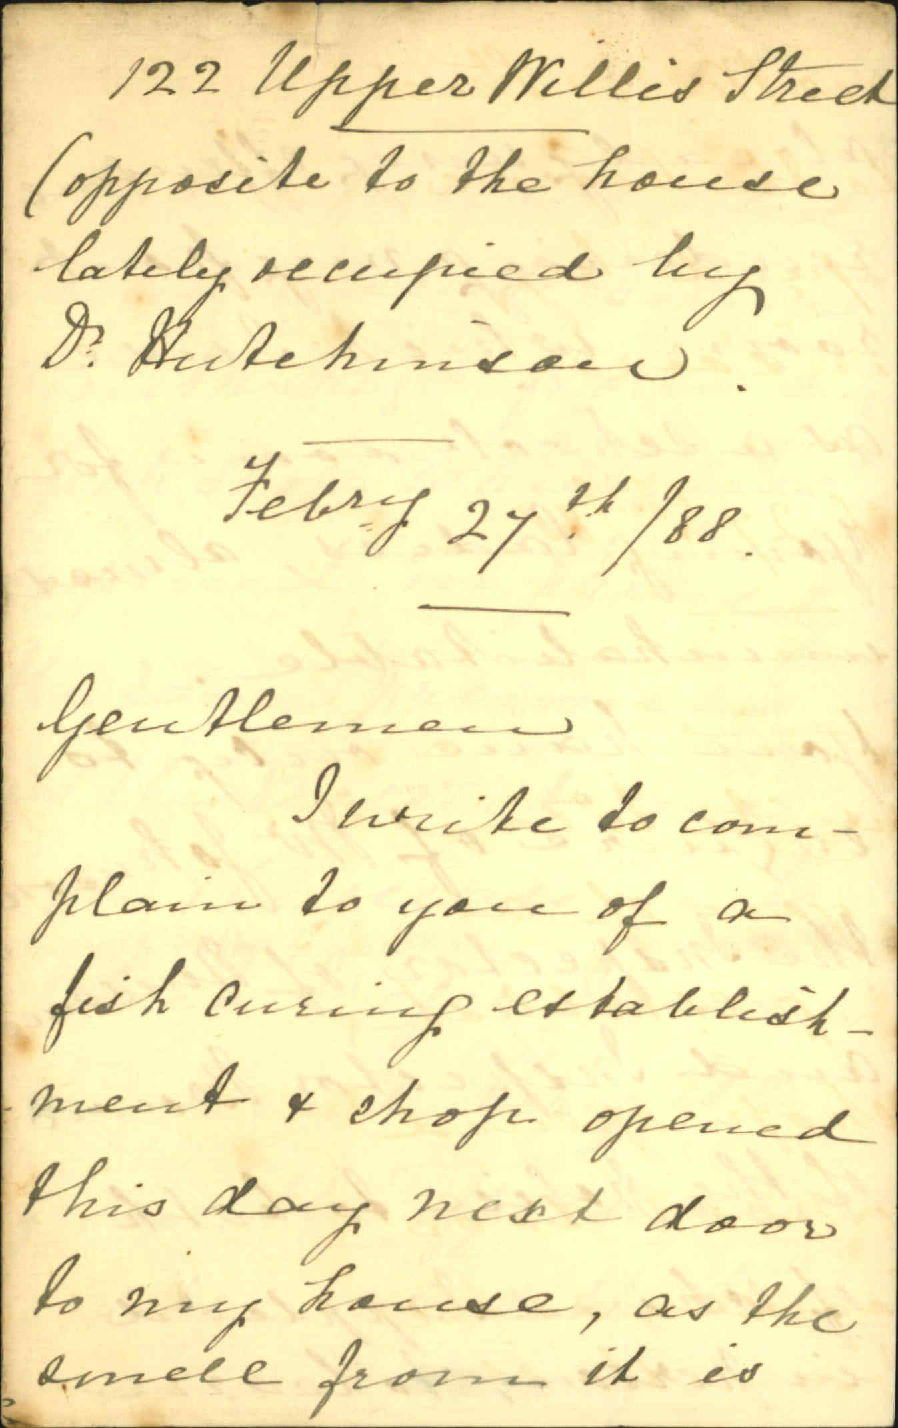 122 Upper Willis Street
(opposite to the house
lately occupied by
Dr. Hutchinson.
Febry 27th /88.
Gentlemen
I write to com-
plain to you of a
fish curing establish-
ment & shop opened
this day next door
to my house, as the
smell from it is